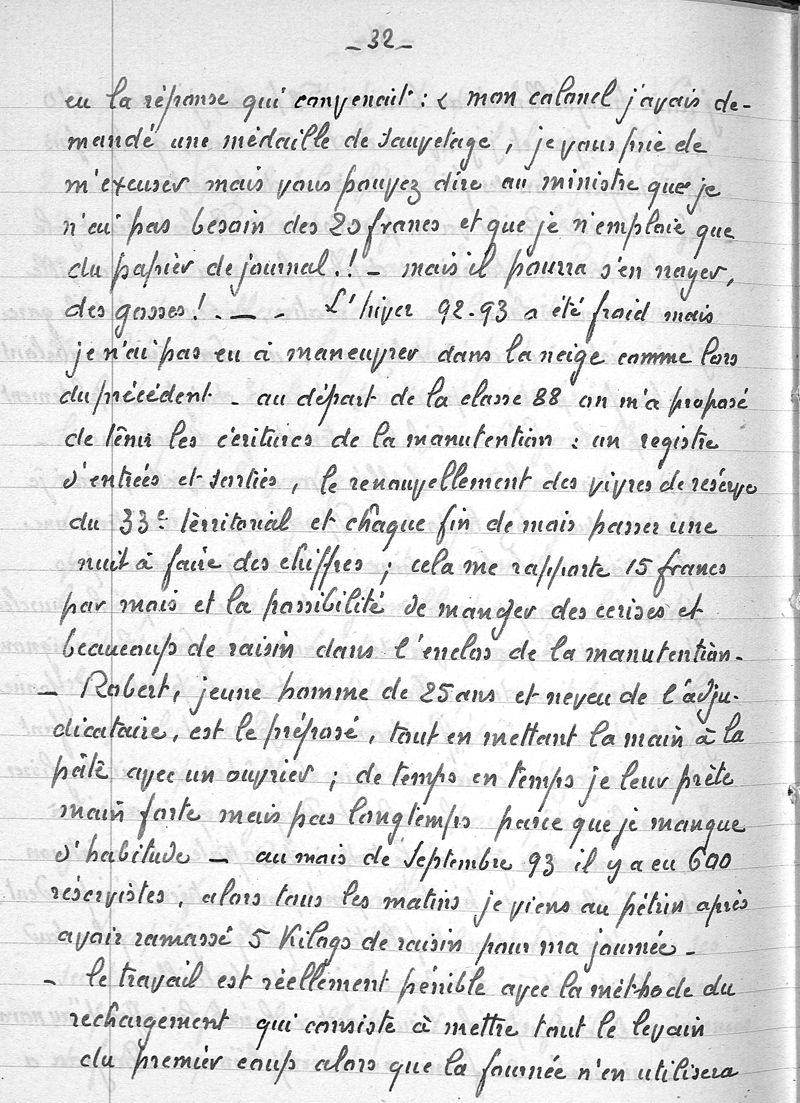 _ 32 _
eu la réponse qui convenait : « mon colonel j'avais de-
mandé une médaille de sauvetage, je vous prie de
m'excuser mais vous pouvez dire au ministre que je
n'ai pas besoin des 20 francs et que je n'emploie que
du papier de journal.! – mais il pourra s'en payer,
des gosses! . — - L'hiver 92-93 a été froid mais
je n'ai pas eu à maneuvrer dans la neige comme lors
du précédent - au départ de la classe 88 on m'a proposé
de tenir les écritures de la manutention : un registre
d'entrées et sorties, le renouvellement des vivres de réserve
du 33e térritorial et chaque fin de mois passer une
nuit à faire des chiffres ; cela me rapporte 15 francs
par mois et la possibilité de manger des cerises et
beaucoup de raisin dans l'enclos de la manutention -
_ Robert, jeune homme de 25 ans et neveu de l'adju-
dicataire, est le préposé, tout en mettant la main à la
pâte avec un ouvrier ; de temps en temps je leur prête
main forte mais pas longtemps parce que je manque
d'habitude — au mois de Septembre 93 il y a eu 600
réservistes, alors tous les matins je viens au pétrin après
avoir ramassé 5 Kilogs de raisin pour ma journée -
- le travail est réellement pénible avec la méthode du
rechargement qui consiste à mettre tout le levain
du premier coup alors que la fournée n'en utilisera